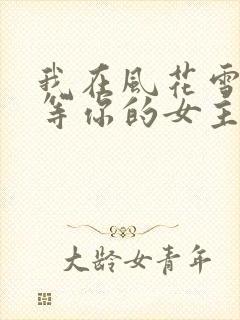 我在風花雪
等你的女主
大龄女青年